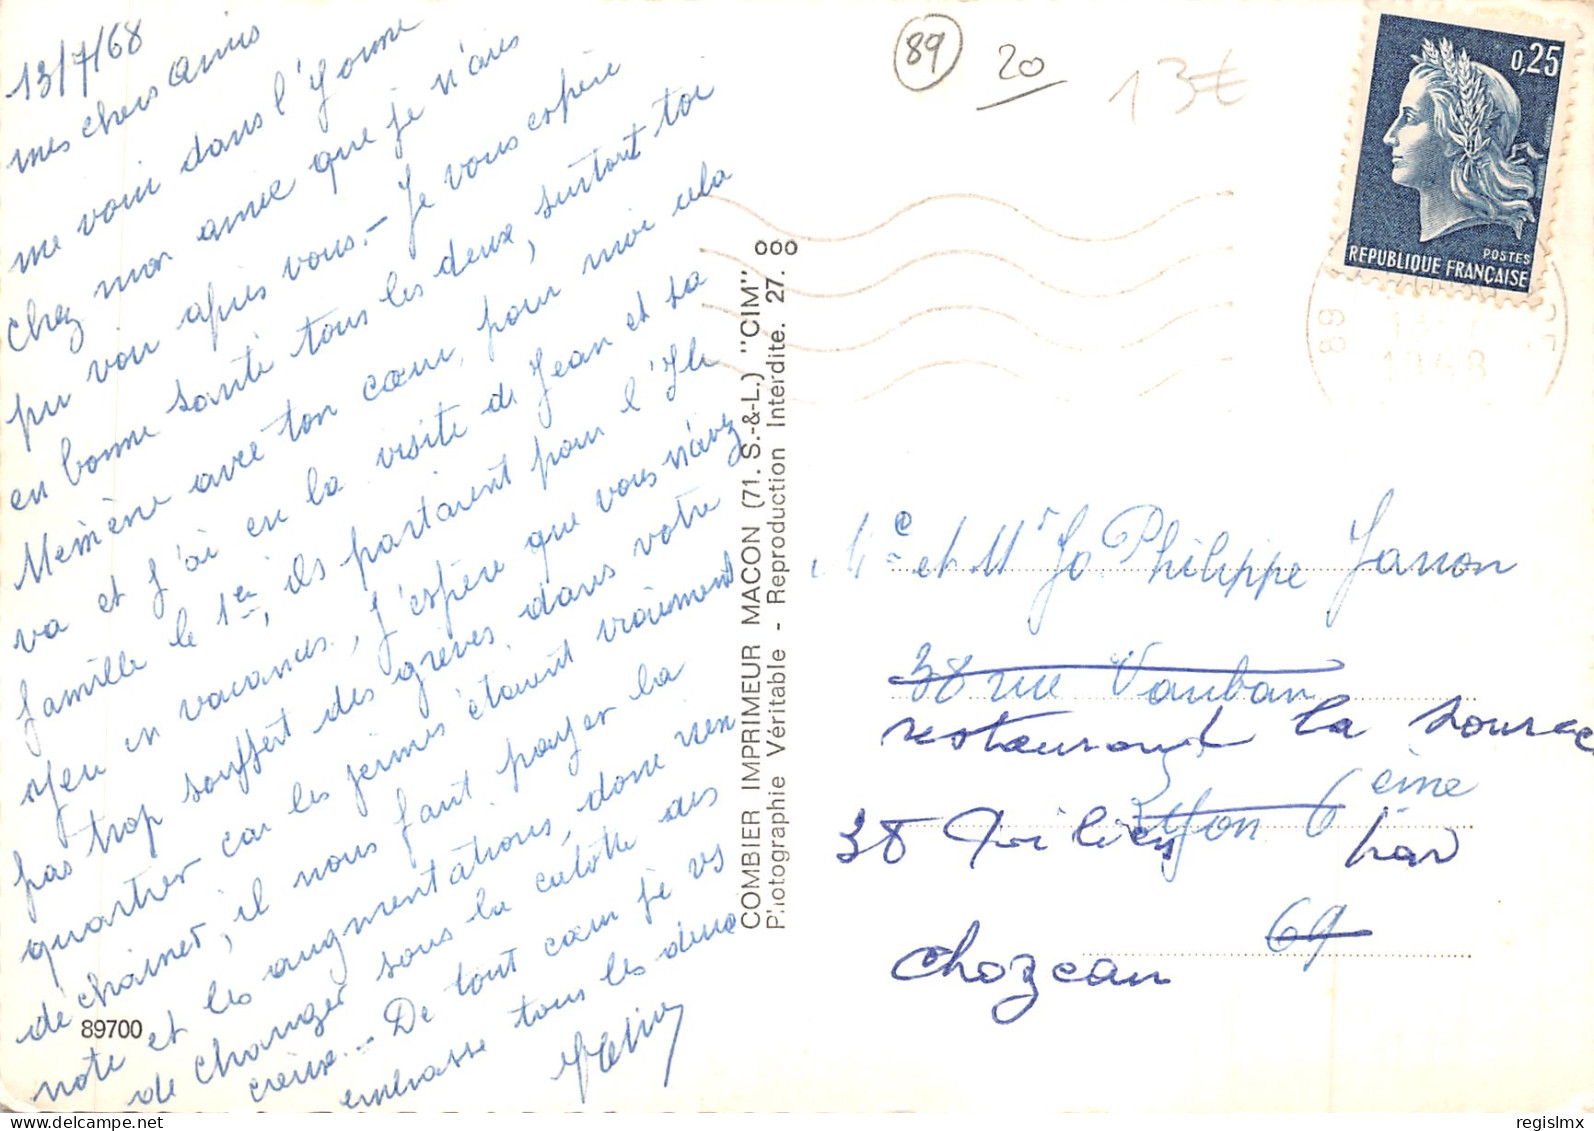 13/7/68
mes chers amis
me voici dans l'Yonne
chez mon amie que je n'avais
pu voir après vous. - Je vous espère
en bonne santé tous les deux, surtout toi
Mémène avec ton cœur, pour moi cela
va et j'ai eu la visite de Jean et sa
famille le 1er, ils partaient pour l'Ile
d'yeu en vacances, J'espère que vous n'avez
pas trop souffert des grèves dans votre
quartier car les jeunes étaient vraiment
déchainés, il nous faut payer la
note et les augmentations, donc rien
de changer sous la culotte des
creux. - De tout cœur je vs
embrasse tous les deux
89700
COMBIER IMPRIMEUR MACON (71. S.-&-L.) "CIM"
Photographie Véritable - Reproduction Interdite. 27. 000
89
20
13€
0,25
POSTES
REPUBLIQUE FRANÇAISE
89
13-7
1968
Me et Mr Jo Philippe Janon
38 rue Vauban
restaurant la source
Lyon 6 eme
38 par
69
Chozeau
regislmx